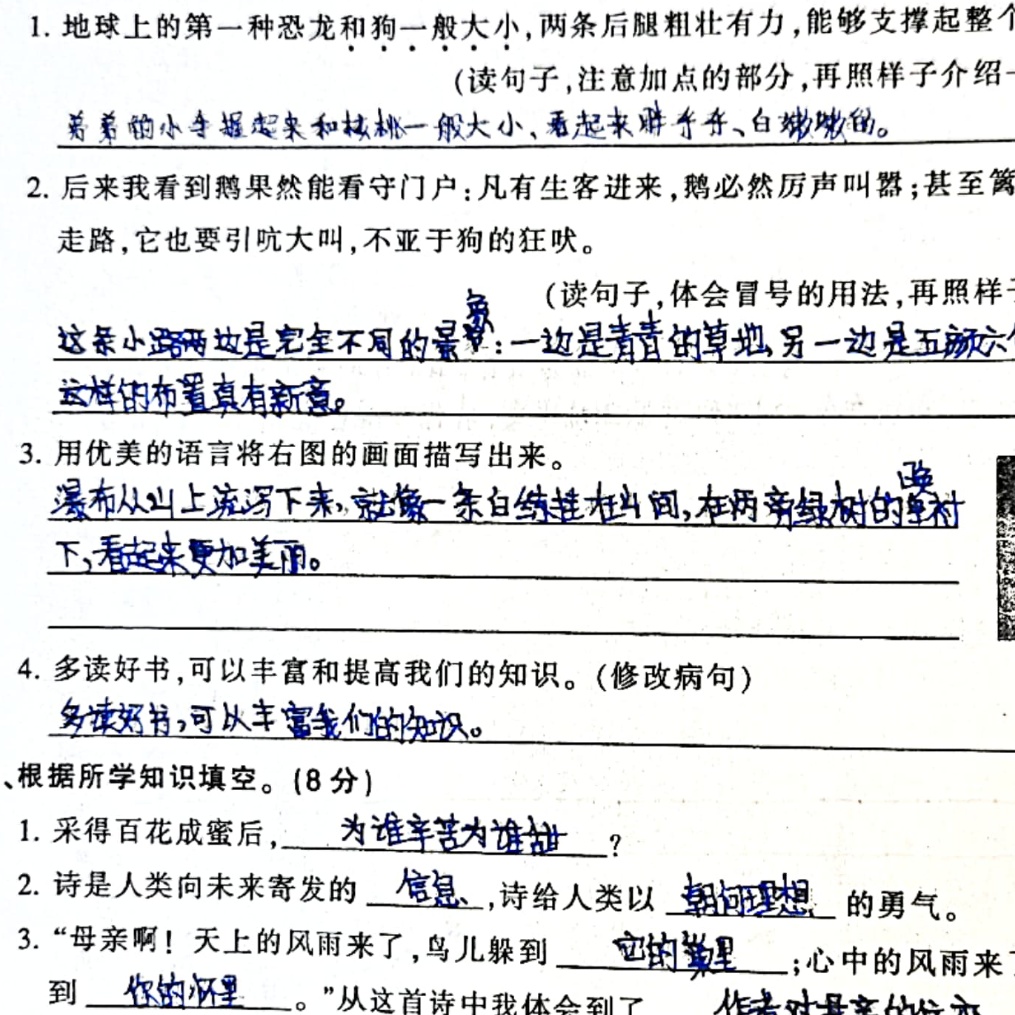 1. 地球上的第一种恐龙和狗一般大小,两条后腿粗壮有力,能够支撑起整个
(读句子,注意加点的部分,再照样子介绍一
弟弟的小手握起来和核桃一般大小、看起来胖乎乎、白嫩嫩的。
2. 后来我看到鹅果然能看守门户:凡有生客进来,鹅必然厉声叫嚣;甚至篱
走路,它也要引吭大叫,不亚于狗的狂吠。
(读句子,体会冒号的用法,再照样子
这条小路两边是完全不同的景象:一边是青青的草地,另一边是五颜六色
这样的布置真有新意。
3. 用优美的语言将右图的画面描写出来。
瀑布从山上流泻下来,就像一条白练挂在山间,在两旁绿树的映衬
下,看起来更加美丽。
4. 多读好书,可以丰富和提高我们的知识。(修改病句)
多读好书,可以丰富我们的知识。
、根据所学知识填空。(8分)
1. 采得百花成蜜后,为谁辛苦为谁甜?
2. 诗是人类向未来寄发的 信息 ,诗给人类以 朝向理想 的勇气。
3. “母亲啊!天上的风雨来了,鸟儿躲到 它的巢里 ;心中的风雨来了
到 你的怀里 。”从这首诗中我体会到了 作者对母亲的依恋